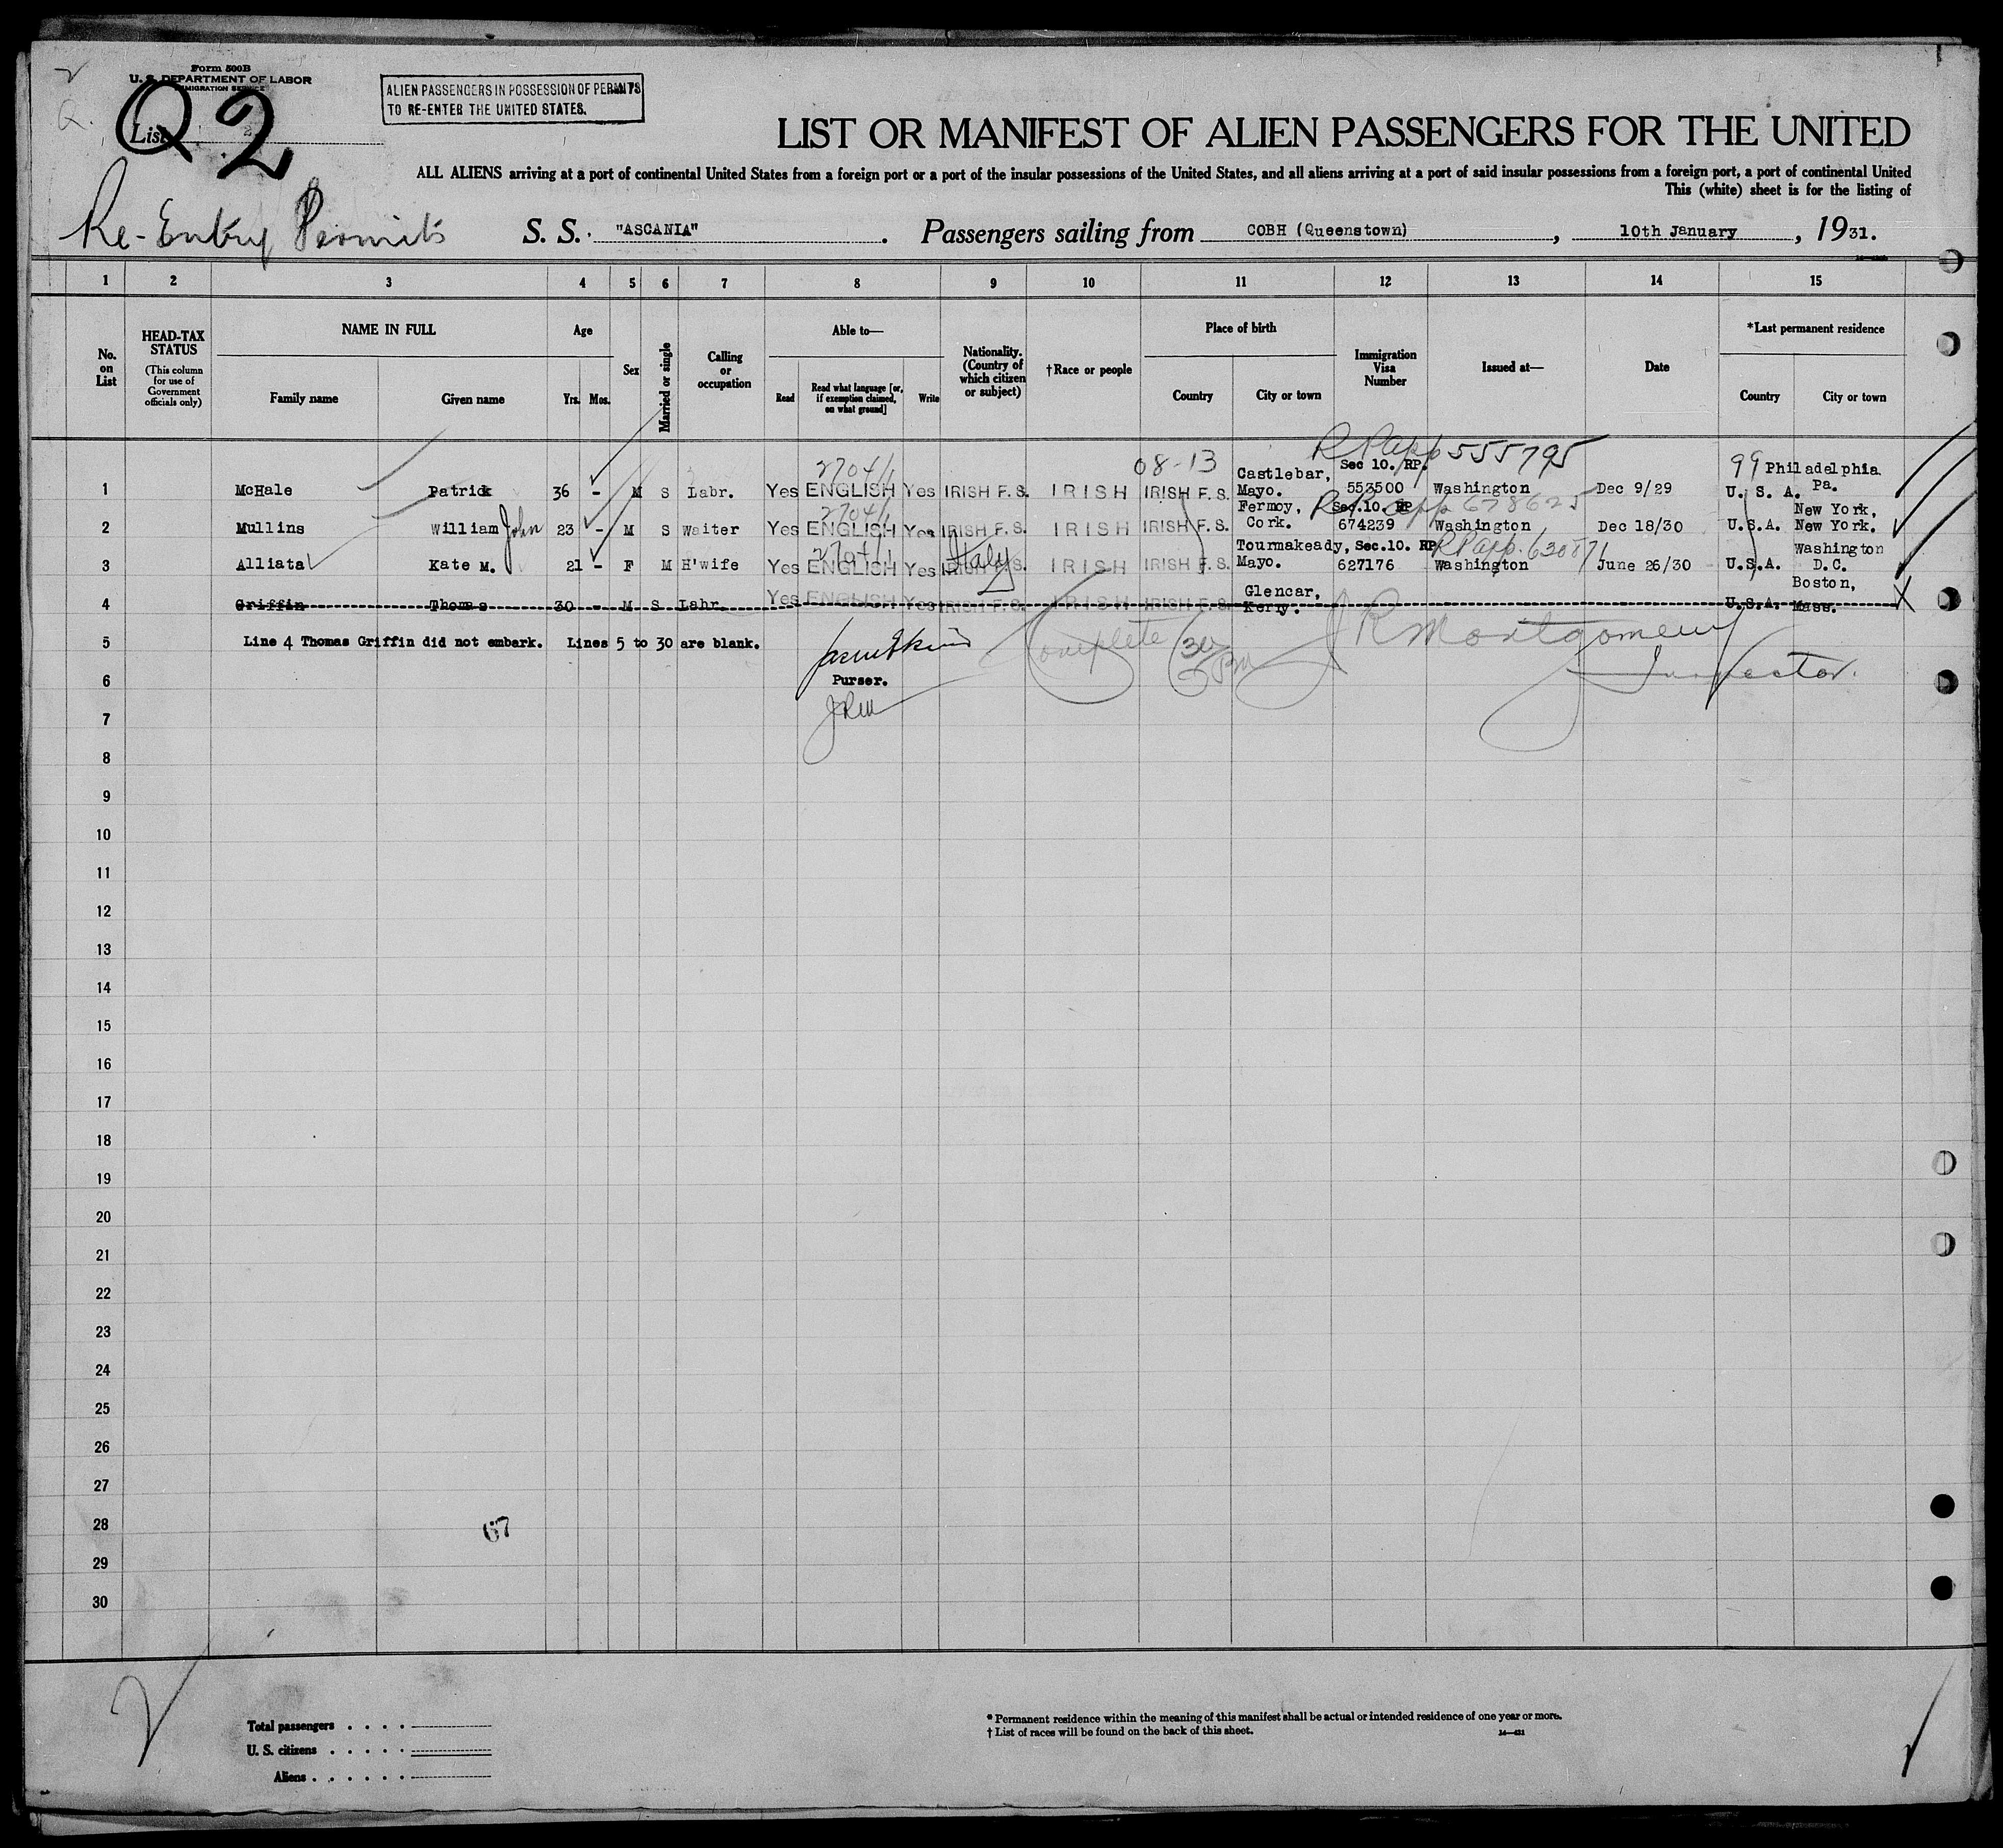 Form 500B
U. S. DEPARTMENT OF LABOR
IMMIGRATION SERVICE
ALIEN PASSENGERS IN POSSESSION OF PERMITS
TO RE-ENTER THE UNITED STATES.
Q 2
List
LIST OR MANIFEST OF ALIEN PASSENGERS FOR THE UNITED
ALL ALIENS arriving at a port of continental United States from a foreign port or a port of the insular possessions of the United States, and all aliens arriving at a port of said insular possessions from a foreign port, a port of continental United
This (white) sheet is for the listing of
Re-Entry Permits
S. S. "ASCANIA". Passengers sailing from COBH (Queenstown), 10th January, 1931.
1 2 3 4 5 6 7 8 9 10 11 12 13 14 15
No. on List
HEAD-TAX STATUS
(This column for use of Government officials only)
NAME IN FULL
Family name Given name
Age
Yrs. Mos.
Sex
Married or single
Calling or occupation
Able to—
Read Read what language [or, if exemption claimed, on what ground] Write
Nationality. (Country of which citizen or subject)
†Race or people
Place of birth
Country City or town
Immigration Visa Number
Issued at—
Date
*Last permanent residence
Country City or town
2704/1 08-13 RP app 555795
1 McHale Patrick 36 - M S Labr. Yes ENGLISH Yes IRISH F.S. IRISH IRISH F.S. Castlebar, Mayo. Sec 10. RP. 553500 Washington Dec 9/29 99 U. S. A. Philadelphia Pa.
2704/1 RP app 678625
2 Mullins William John 23 - M S Waiter Yes ENGLISH Yes IRISH F.S. IRISH IRISH F.S. Fermoy, Cork. Sec.10. RP 674239 Washington Dec 18/30 U.S.A. New York, New York.
2704/1 Italy RP app. 630871
3 Alliata Kate M. 21 - F M H'wife Yes ENGLISH Yes IRISH F.S. IRISH IRISH F.S. Tourmakeady, Mayo. Sec.10. RP 627176 Washington June 26/30 U.S.A. Washington D.C.
4 Griffin Thomas 30 - M S Labr. Yes ENGLISH Yes IRISH F.S. IRISH IRISH F.S. Glencar, Kerry. U.S.A. Boston, Mass. X
5 Line 4 Thomas Griffin did not embark. Lines 5 to 30 are blank.
Complete J R Montgomery
Inspector.
6 Purser.
JRM
7
8
9
10
11
12
13
14
15
16
17
18
19
20
21
22
23
24
25
26
27
28
67
29
30
Total passengers
U. S. citizens
Aliens
* Permanent residence within the meaning of this manifest shall be actual or intended residence of one year or more.
† List of races will be found on the back of this sheet.